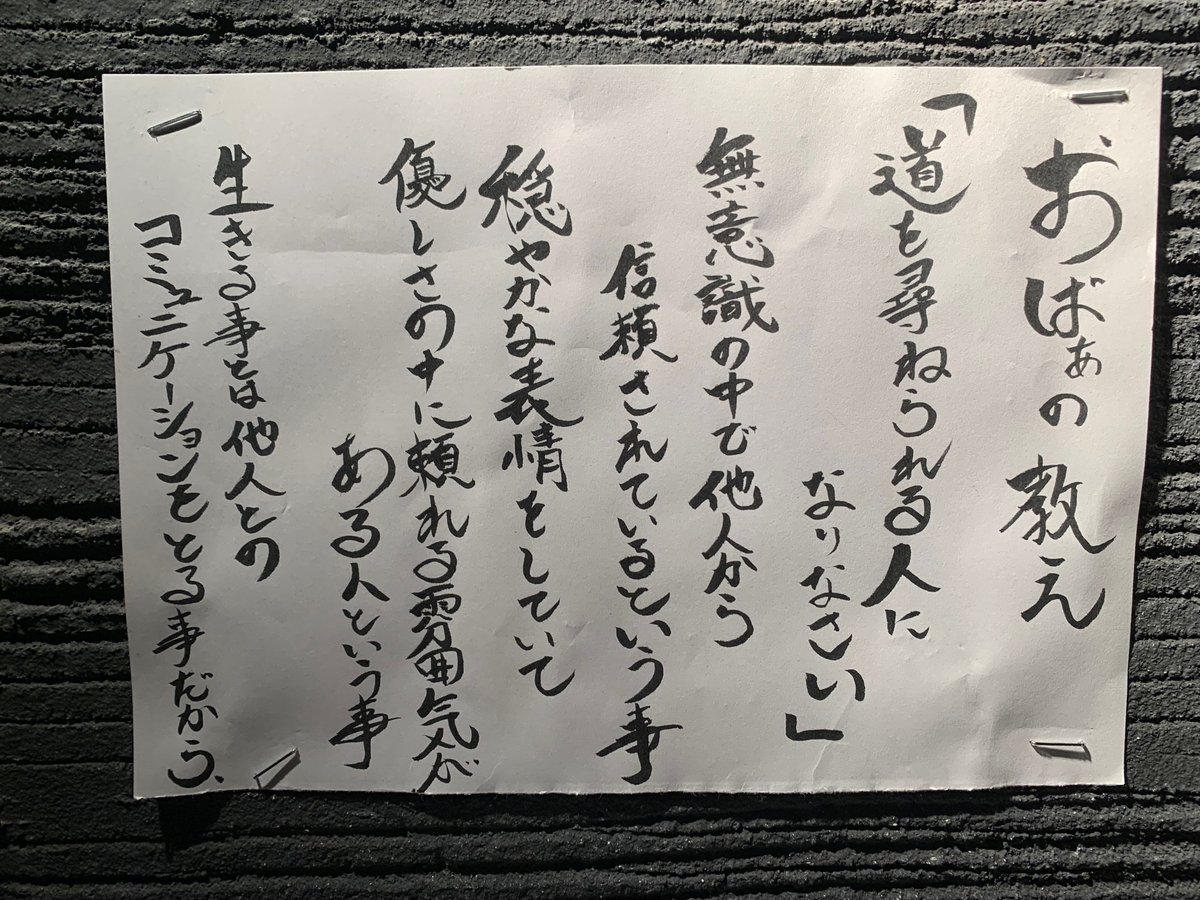 おばぁの教え
「道を尋ねられる人に
なりなさい」
無意識の中で他人から
信頼されているという事
穏やかな表情をしていて
優しさの中に頼れる雰囲気が
ある人という事
生きる事とは他人との
コミュニケーションをとる事だから、